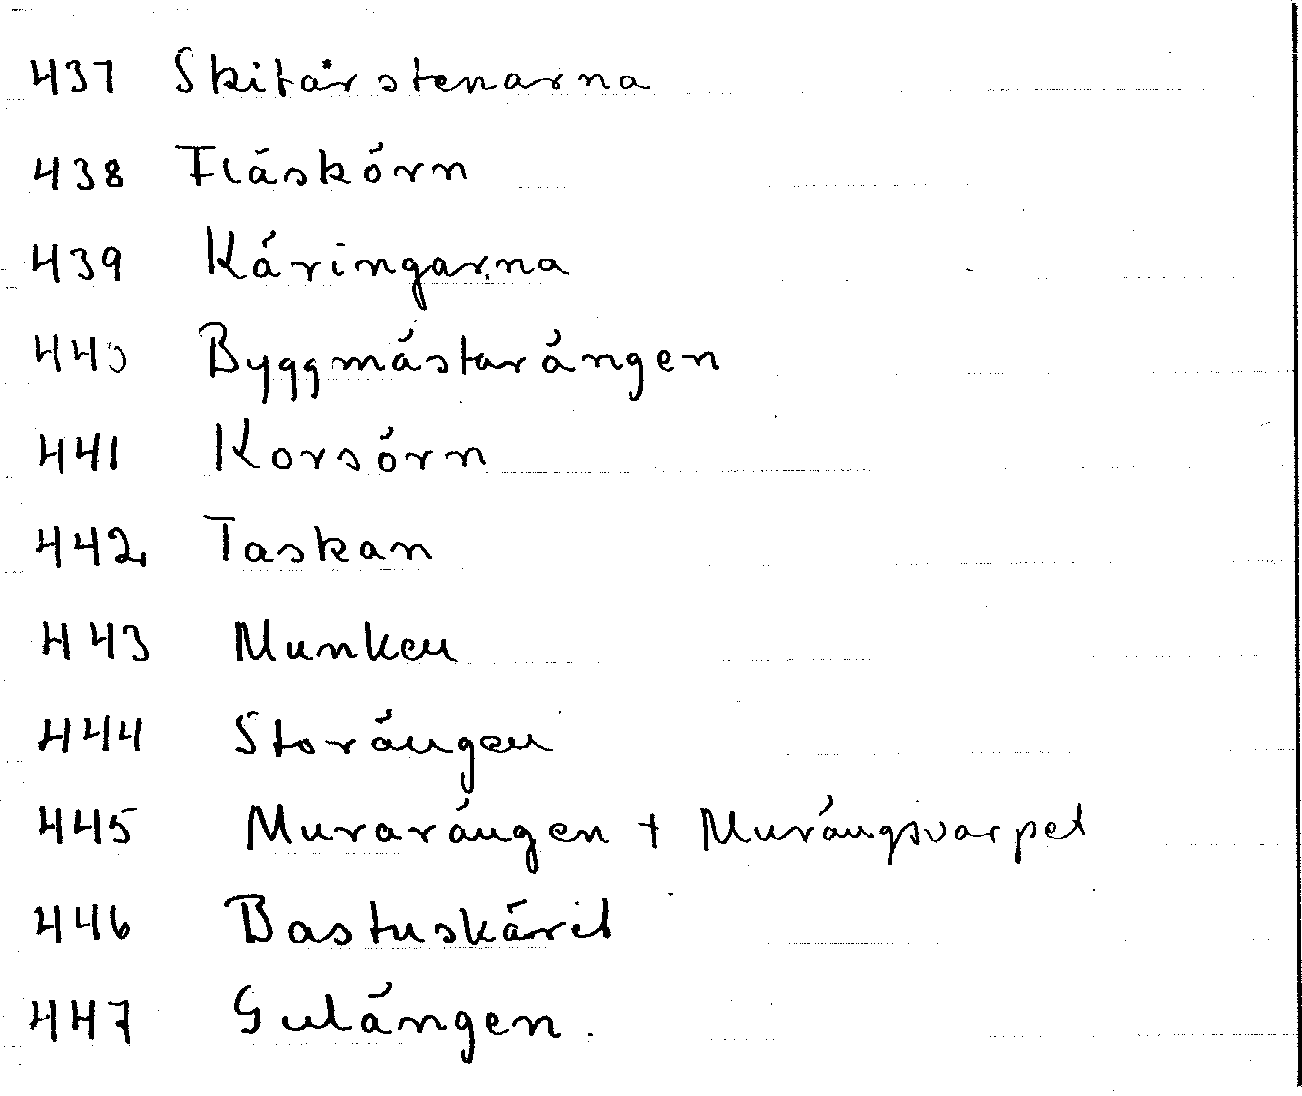 437 Skitårstenarna
438 Fläskörn
439 Käringarna
440 Byggmästarängen
441 Korsörn
442 Taskan
443 Munken
444 Storängen
445 Murarängen + Murängsvarpet
446 Bastukäret
447 Gulängen.